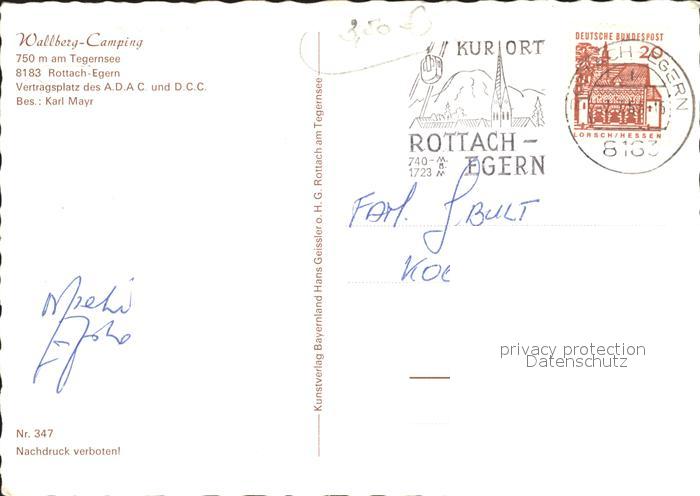 Wallberg-Camping
750 m am Tegernsee
8183 Rottach-Egern
Vertragsplatz des A.D.A.C. und D.C.C.
Bes.: Karl Mayr
Nr. 347
Nachdruck verboten!
Kunstverlag Bayernland Hans Geissler o. H. G. Rottach am Tegernsee
KURORT
ROTTACH-
EGERN
740-
1723 M
DEUTSCHE BUNDESPOST
20
LORSCH/HESSEN
EGERN
8183
FAM. BULT
privacy protection
Datenschutz